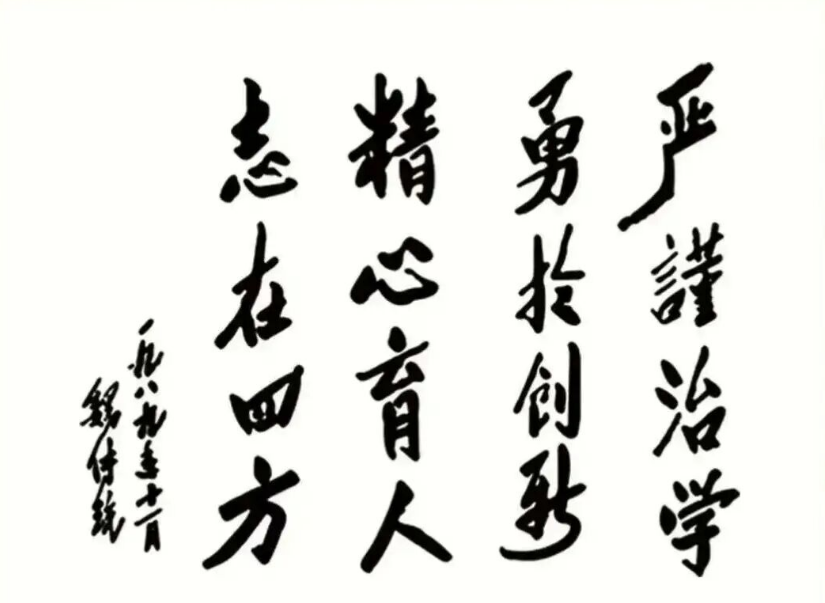 严謹治学
勇於创新
精心育人
志在四方
一九八九年十一月
魏传统